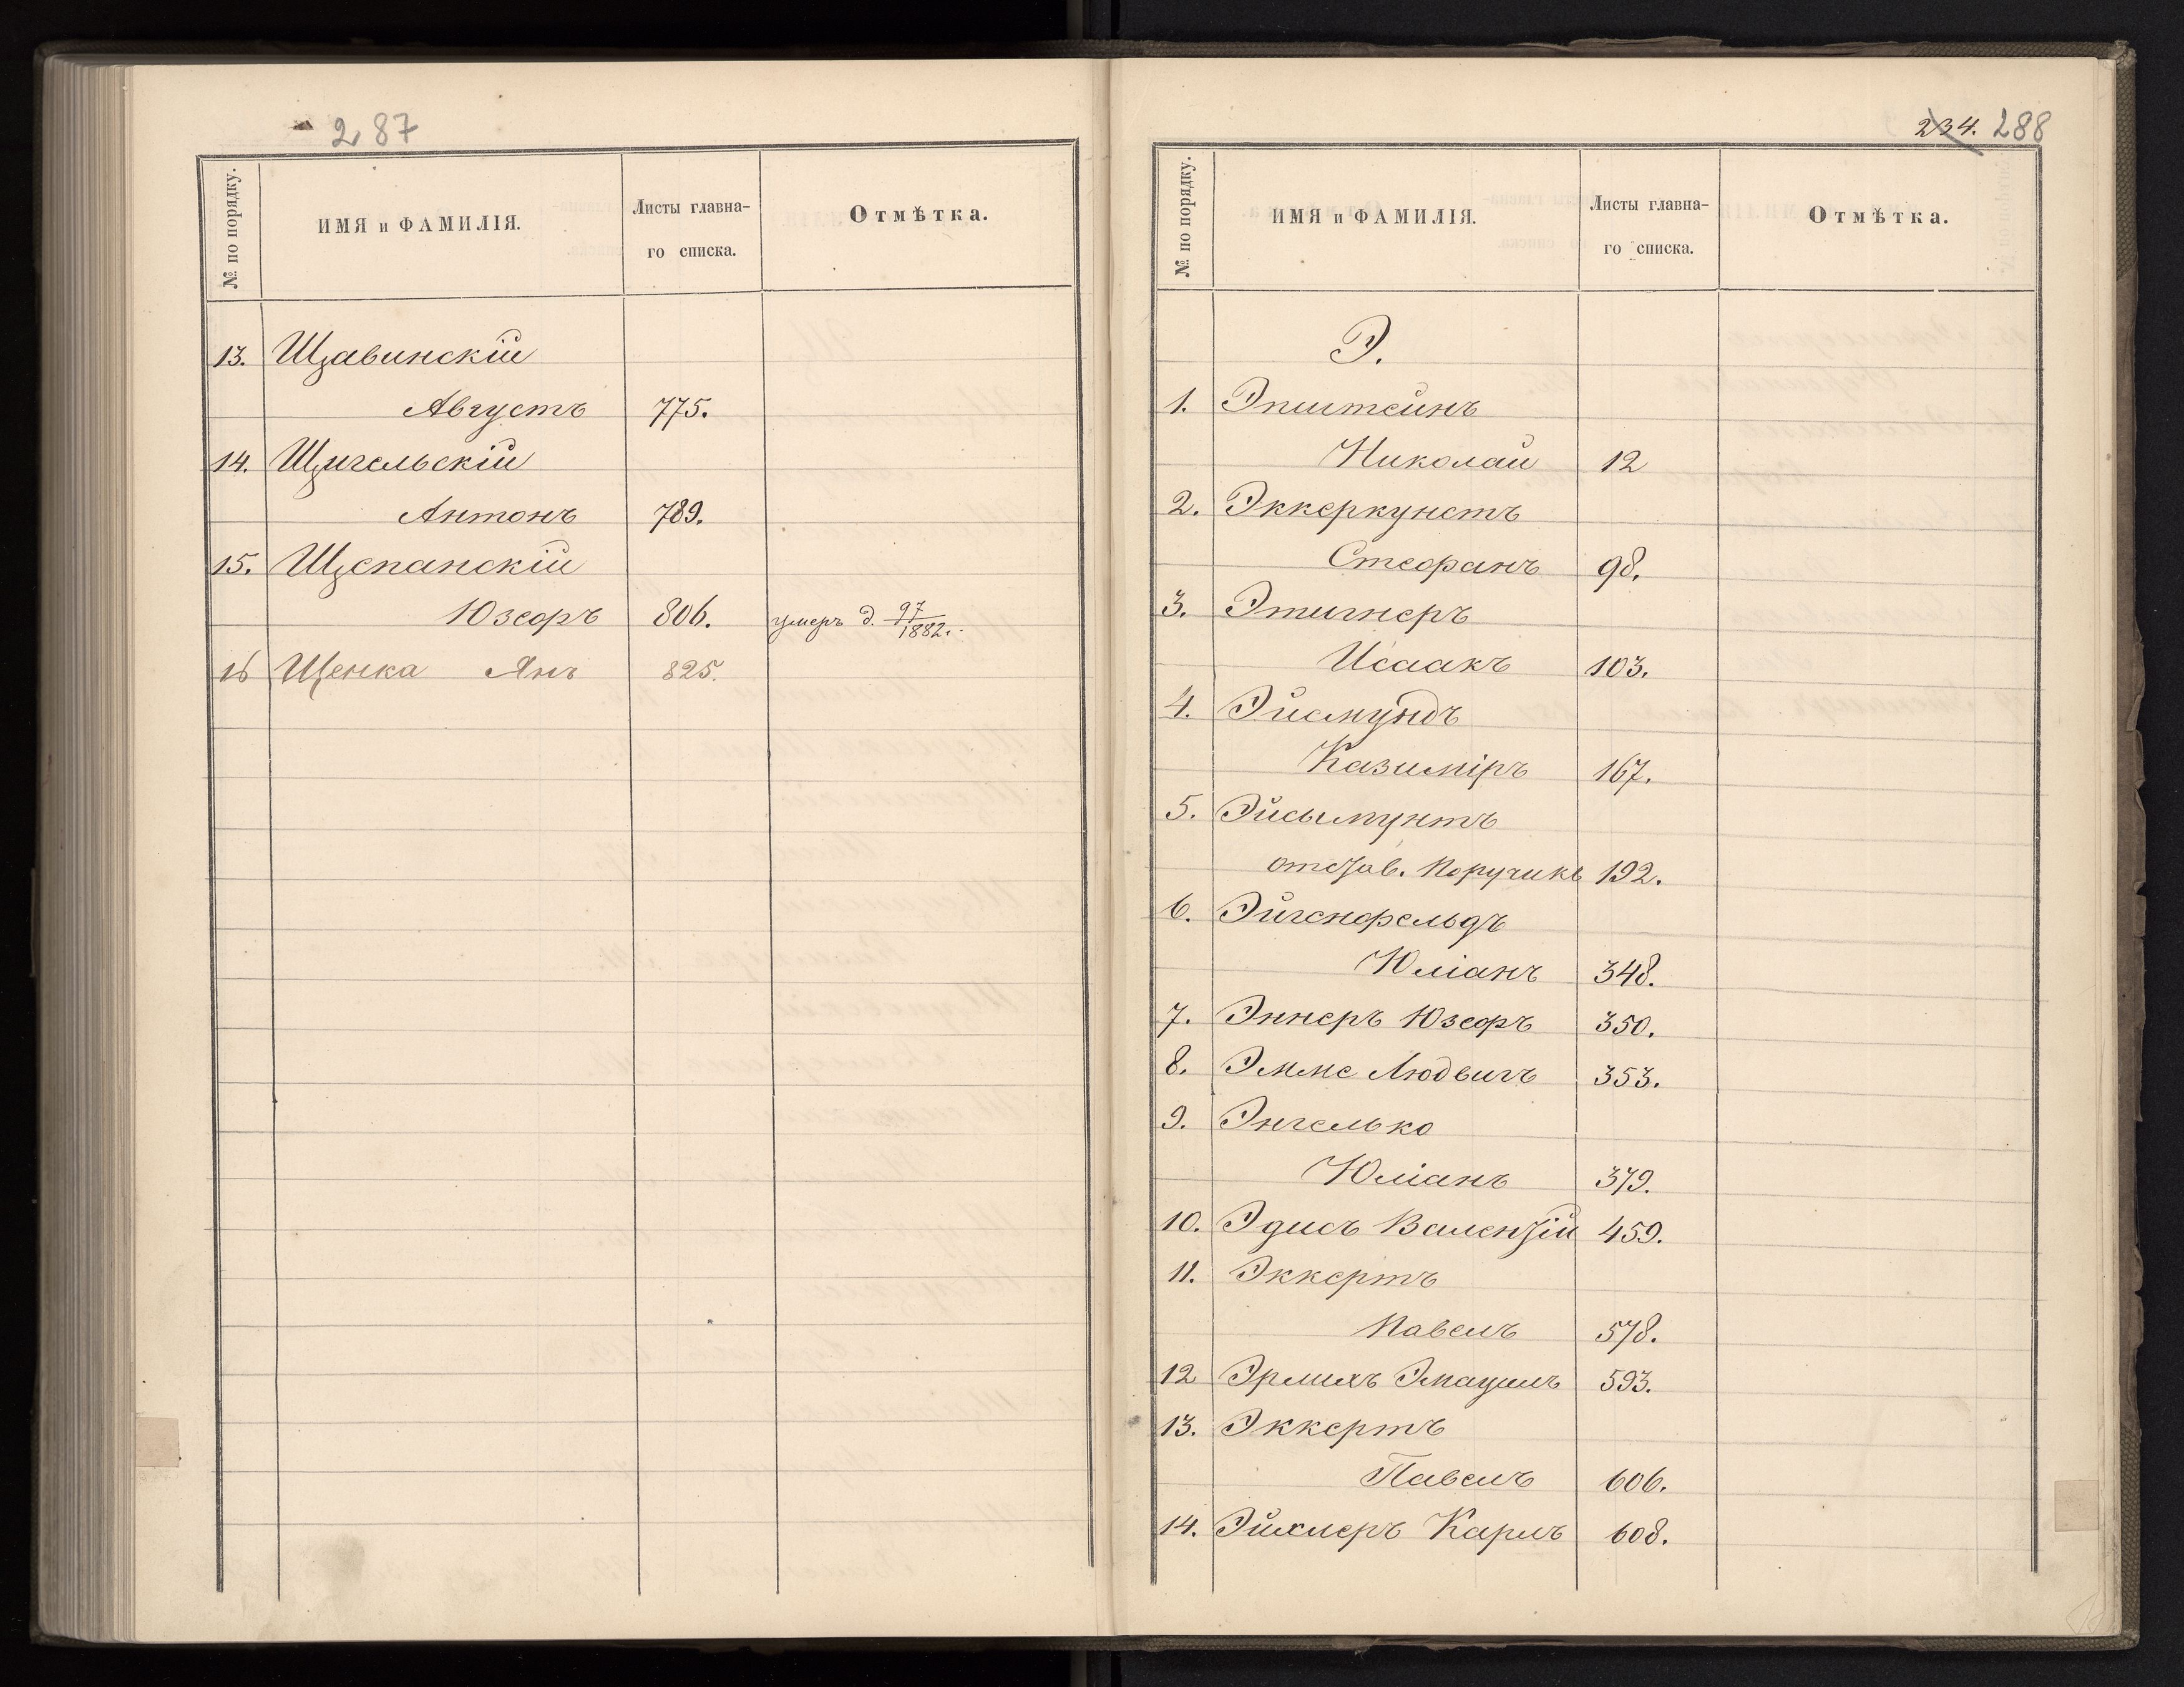 287
№ по порядку.
ИМЯ и ФАМИЛІЯ.
Листы главна-
го списка.
Отмѣтка.
13. Щавинскій
Августъ 775.
14. Щигельскій
Антонъ 789.
15. Щепанскій
Юзефъ 806. умеръ д. 97/1882.
16 Щепка Янъ 825.
234. 288
№ по порядку.
ИМЯ и ФАМИЛІЯ.
Листы главна-
го списка.
Отмѣтка.
Э.
1. Эпштейнъ
Николай 12
2. Эккеркунстъ
Стефанъ 98.
3. Этигнеръ
Исаакъ 103.
4. Эйсмундъ
Казиміръ 167.
5. Эйсымунтъ
отстав. Поручикъ 192.
6. Эйгенфельдъ
Юліанъ 348.
7. Эннеръ Юзефъ 350.
8. Эмме Людвигъ 353.
9. Энгелько
Юліанъ 379.
10. Эдисъ Валентій 459.
11. Эккертъ
Павелъ 578.
12 Эрлихъ Эмауилъ 593.
13. Эккертъ
Павелъ 606.
14. Эйхлеръ Карлъ 608.